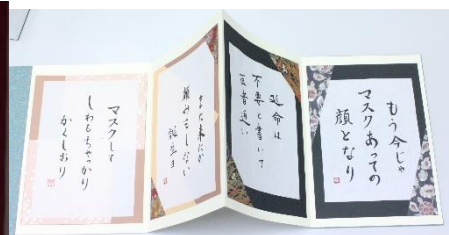 もう今じゃ
マスクあっての
顔となり
延命は
不要と書いて
医者通い
また来たか
頼みもしない
誕生日
マスクして
しわもちゃっかり
かくしおり